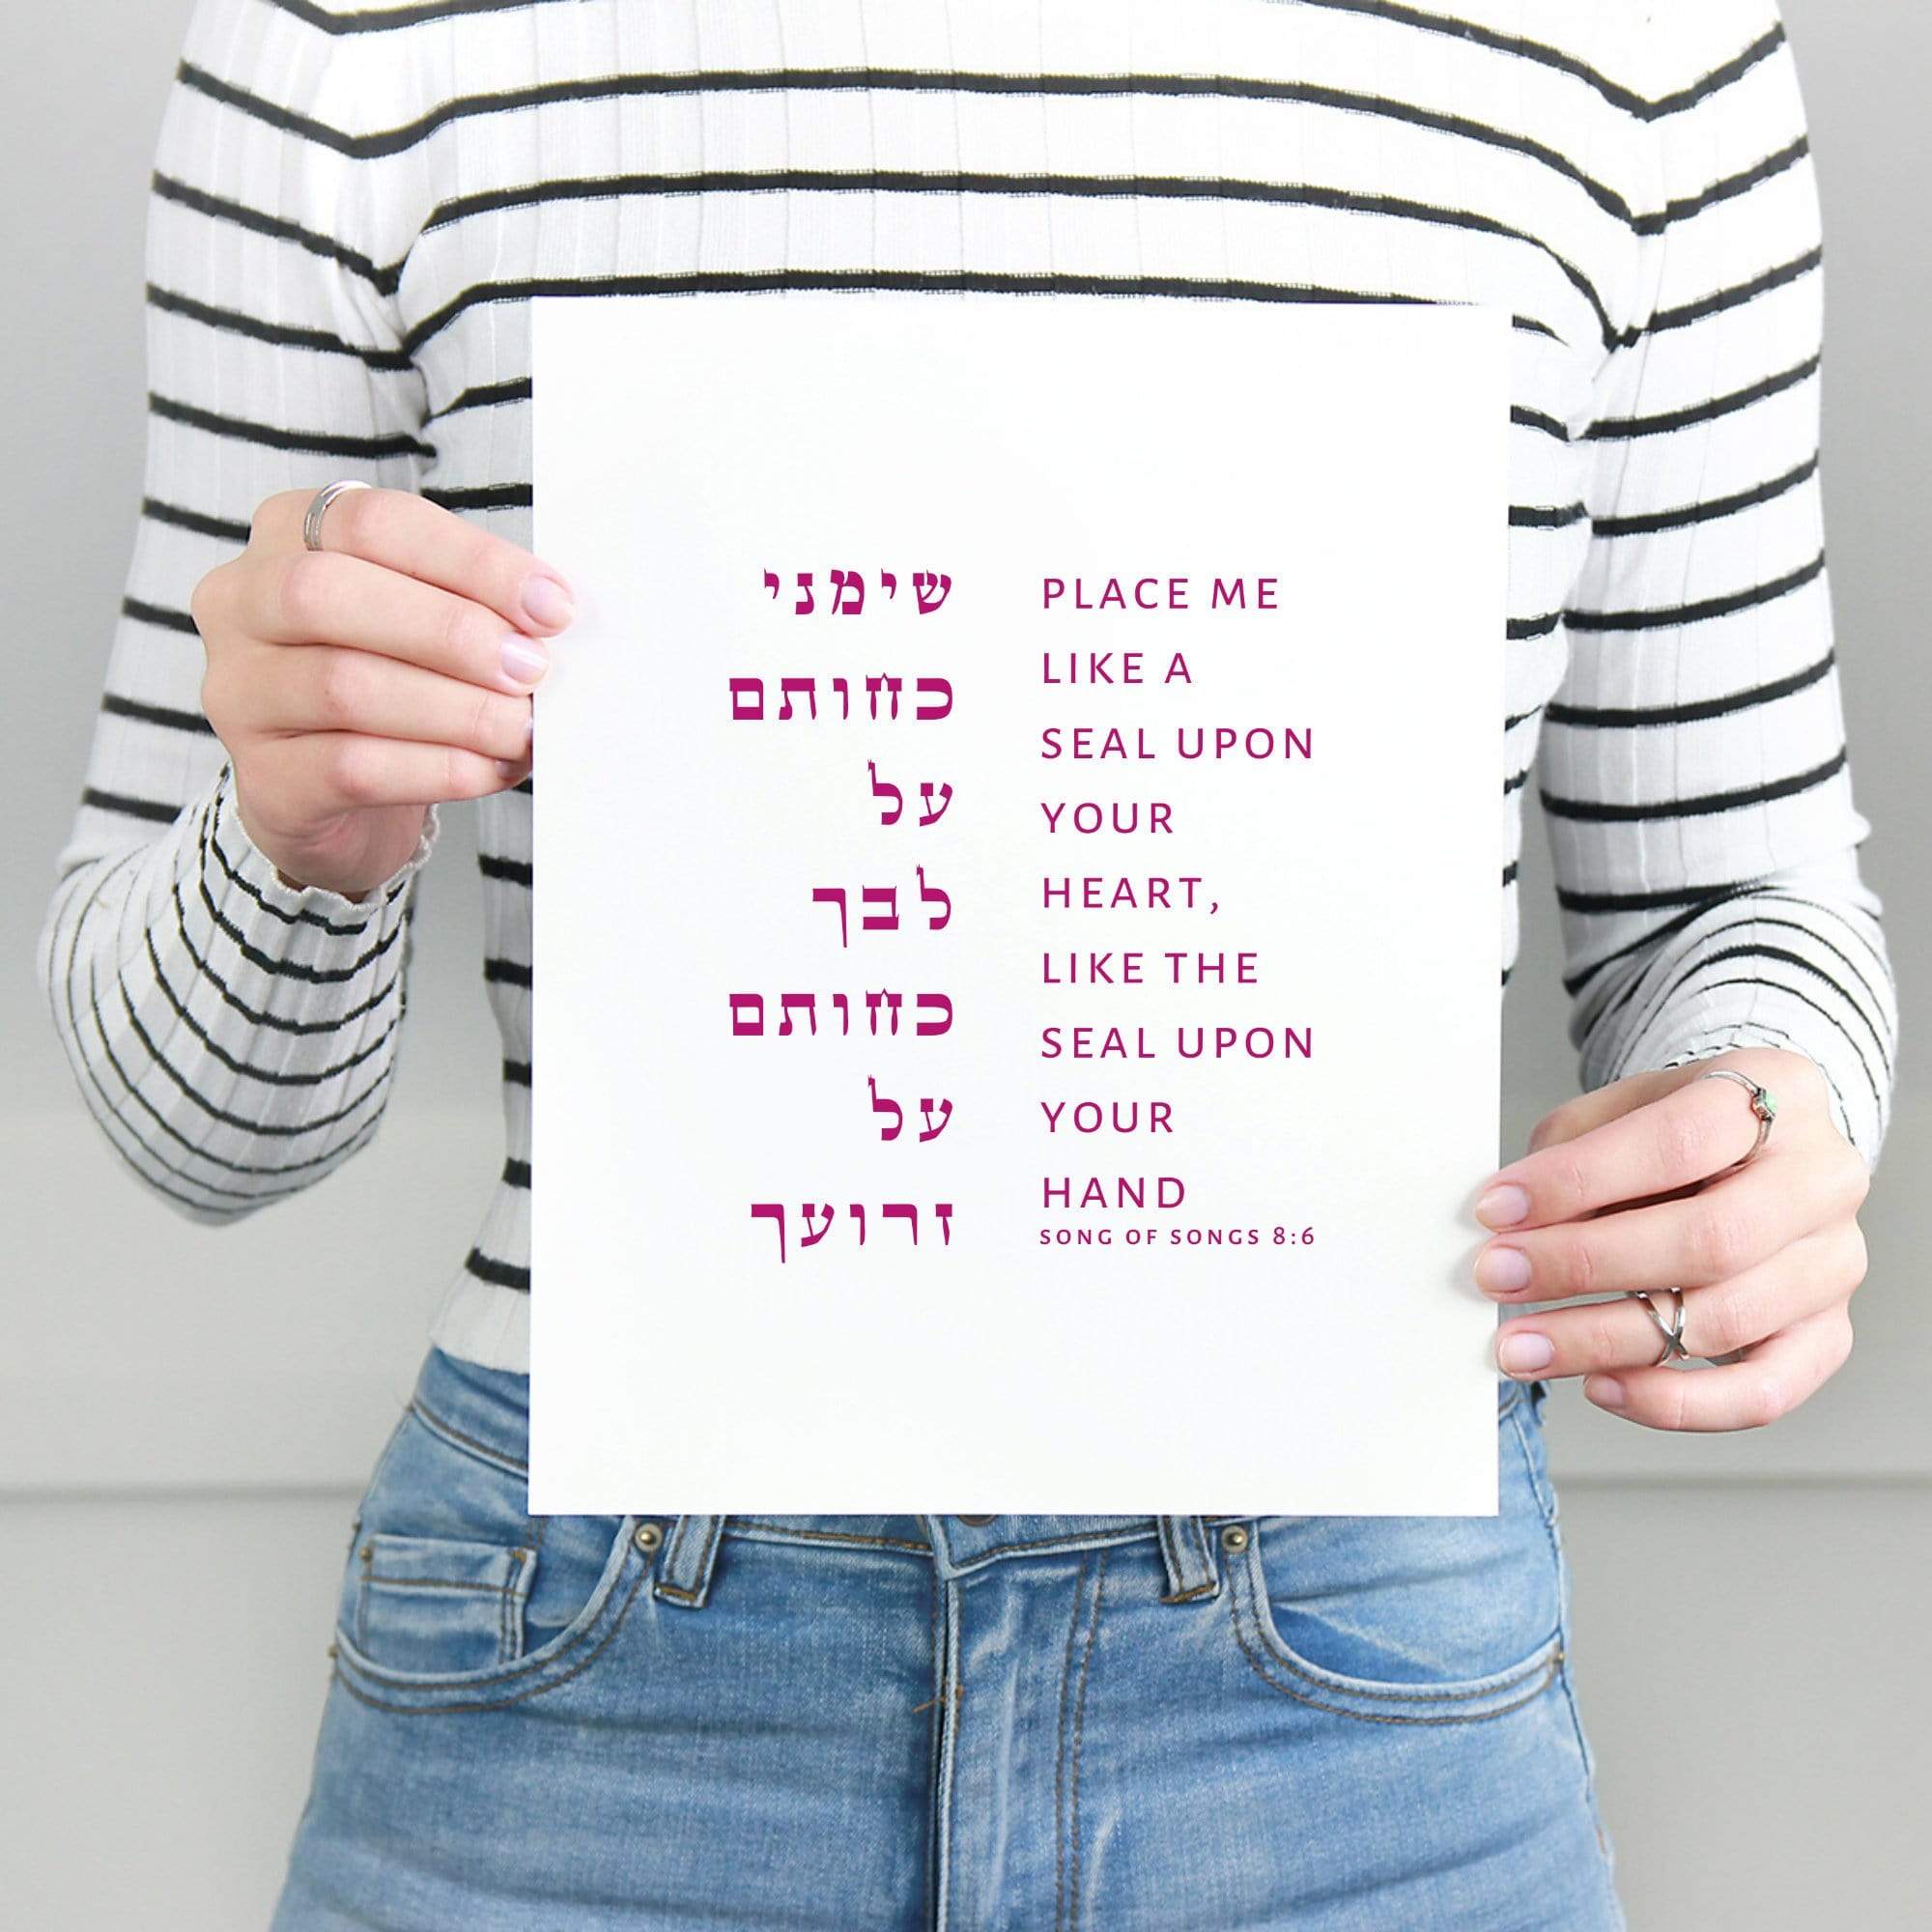 שימני
כחותם
על
לבך
כחותם
על
זרועך
PLACE ME
LIKE A
SEAL UPON
YOUR
HEART,
LIKE THE
SEAL UPON
YOUR
HAND
SONG OF SONGS 8:6